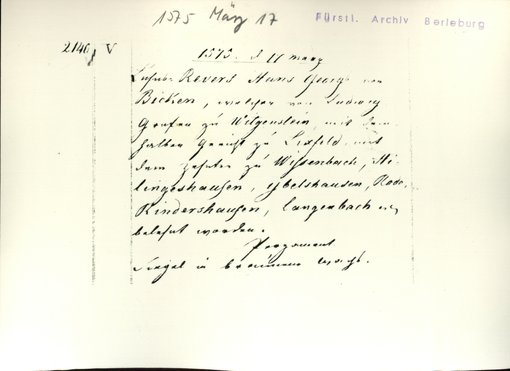 1575 März 17
Fürstl. Archiv Berleburg
2140 V
1575. d 17 März
Lehns Revers Hans Georgs von
Bicken, welcher von Ludwig
Grafen zu Witgenstein mit dem
halben Gericht zu Lixfeld, mit
dem zehnten zu Wissenbach,
lingeshausen, Ebelshausen, Rode,
Rindershausen, Langenbach
belehnt worden.
Pergament
Siegel in braunem Wachs.